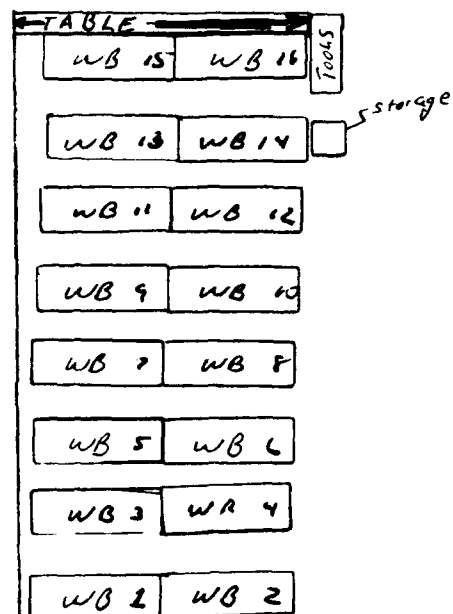 TABLE
WB 15 WB 16
Tools
storage
WB 13 WB 14
WB 11 WB 12
WB 9 WB 10
WB 7 WB 8
WB 5 WB 6
WB 3 WB 4
WB 1 WB 2